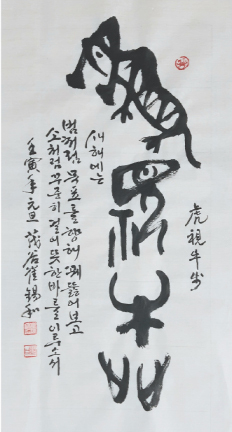 虎視牛步
虎視牛步
새해에는
범처럼 목표를 향해 꿰뚫어보고
소처럼 꾸준히 걸어 뜻한바를 이루소서
壬寅年 元旦 茂谷 崔錫和